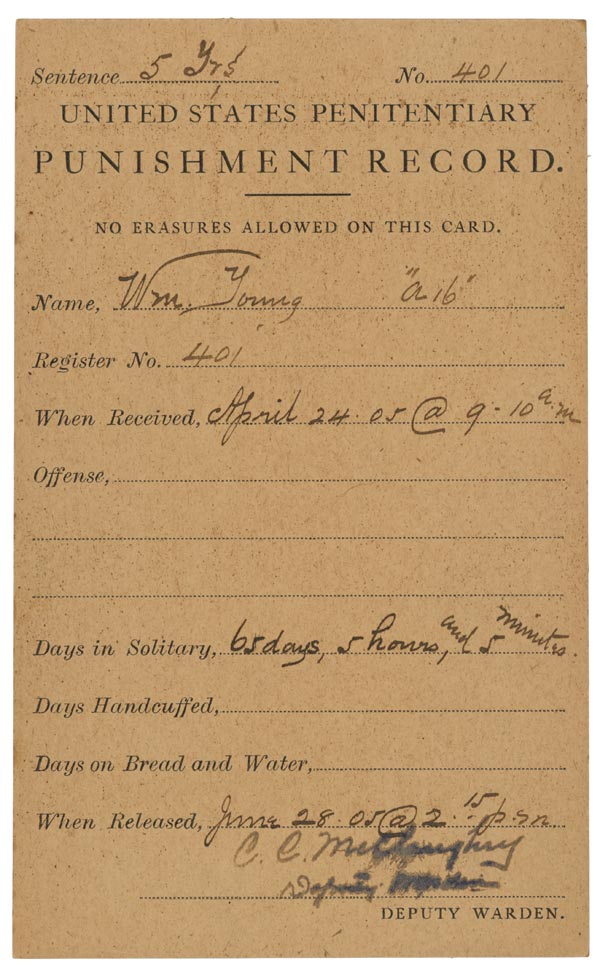 Sentence 5 Yrs No. 401
UNITED STATES PENITENTIARY
PUNISHMENT RECORD.
NO ERASURES ALLOWED ON THIS CARD.
Name, Wm. Young "a 16"
Register No. 401
When Received, April 24 · 05 @ 9 - 10 a.m
Offense,
Days in Solitary, 65 days, 5 hours, and 5 minutes.
Days Handcuffed,
Days on Bread and Water,
When Released, June 28 · 05 @ 2 · 15 p.m.
C. C. McClaughry
Deputy Warden
DEPUTY WARDEN.